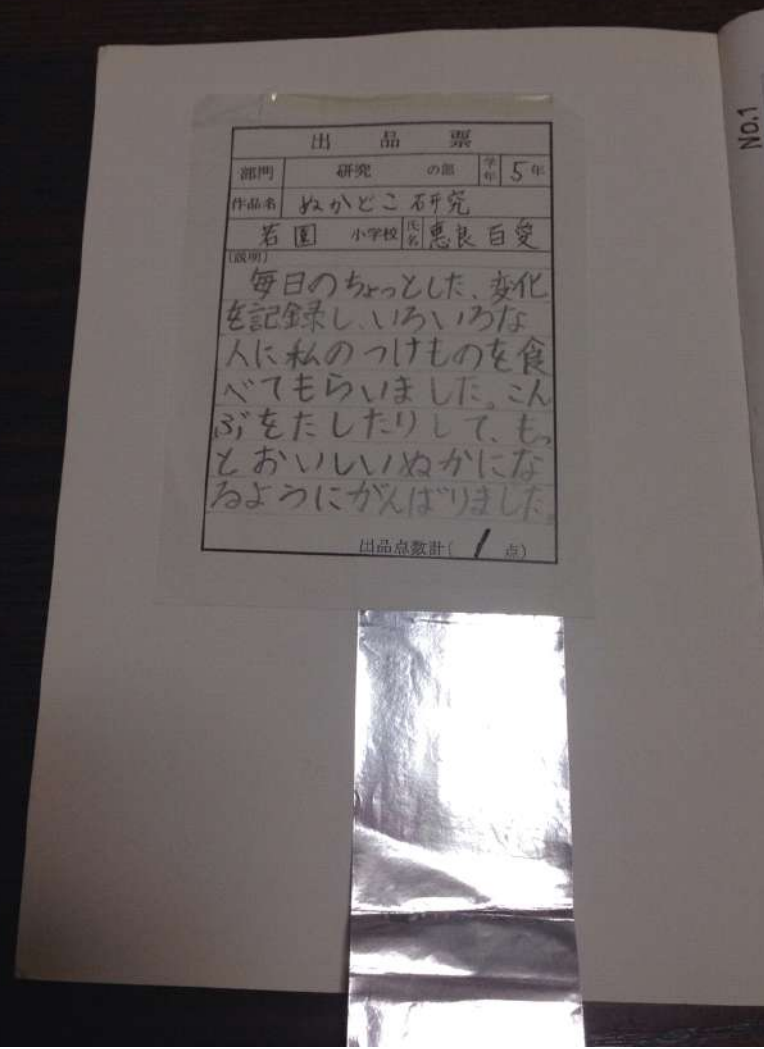 出品票
部門 研究 の部 学年 5年
作品名 ぬかどこ研究
若園 小学校 氏名 恵良百愛
(説明)
毎日のちょっとした、変化
を記録し、いろいろな
人に私のつけものを食
べてもらいました。こん
ぶをたしたりして、もっ
とおいしいぬかにな
るようにがんばりました。
出品点数計( 1 点)
No.1